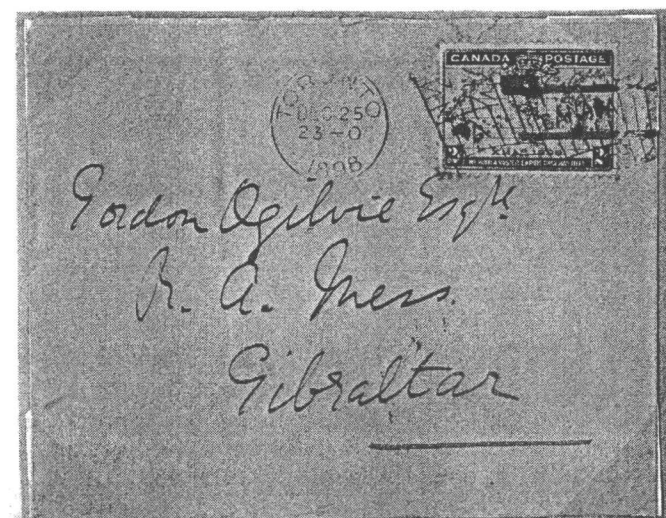 CANADA POSTAGE
XMAS 1898
2 2
TORONTO
DEC 25
23-0
1898
Gordon Ogilvie Esqre
R. A. Mess.
Gibraltar